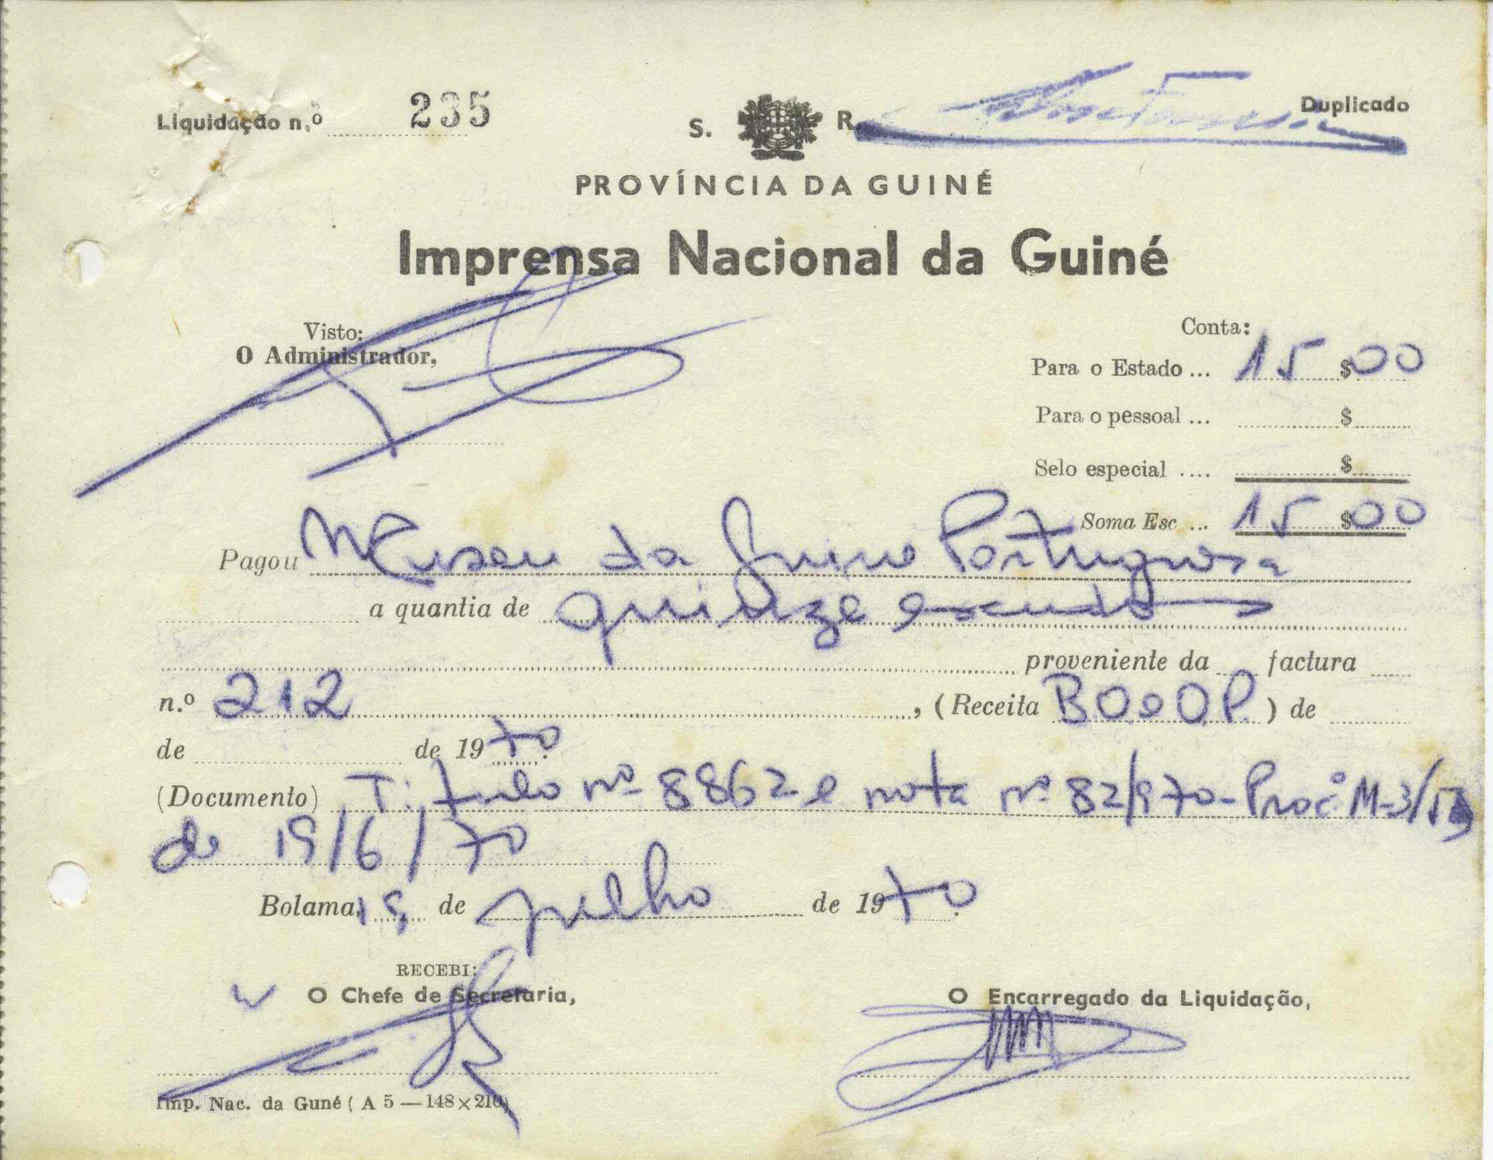 Liquidação n.º 235
S. R.
Duplicado
PROVÍNCIA DA GUINÉ
Imprensa Nacional da Guiné
Visto:
O Administrador,
Conta:
Para o Estado ... 15 $00
Para o pessoal ... $
Selo especial .... $
Soma Esc ... 15 $00
Pagou Museu da Guine Portuguesa
a quantia de quinze escudos
proveniente da factura
n.º 212 , (Receita B.O e O.P. ) de
de de 1970.
(Documento) Titulo nº 8862 e nota nº 82/970 - Procº M-3/
de 19/6/70
Bolama, 19, de julho de 1970.
RECEBI:
O Chefe de Secretaria,
O Encarregado da Liquidação,
Imp. Nac. da Guné ( A 5 — 148 × 210)